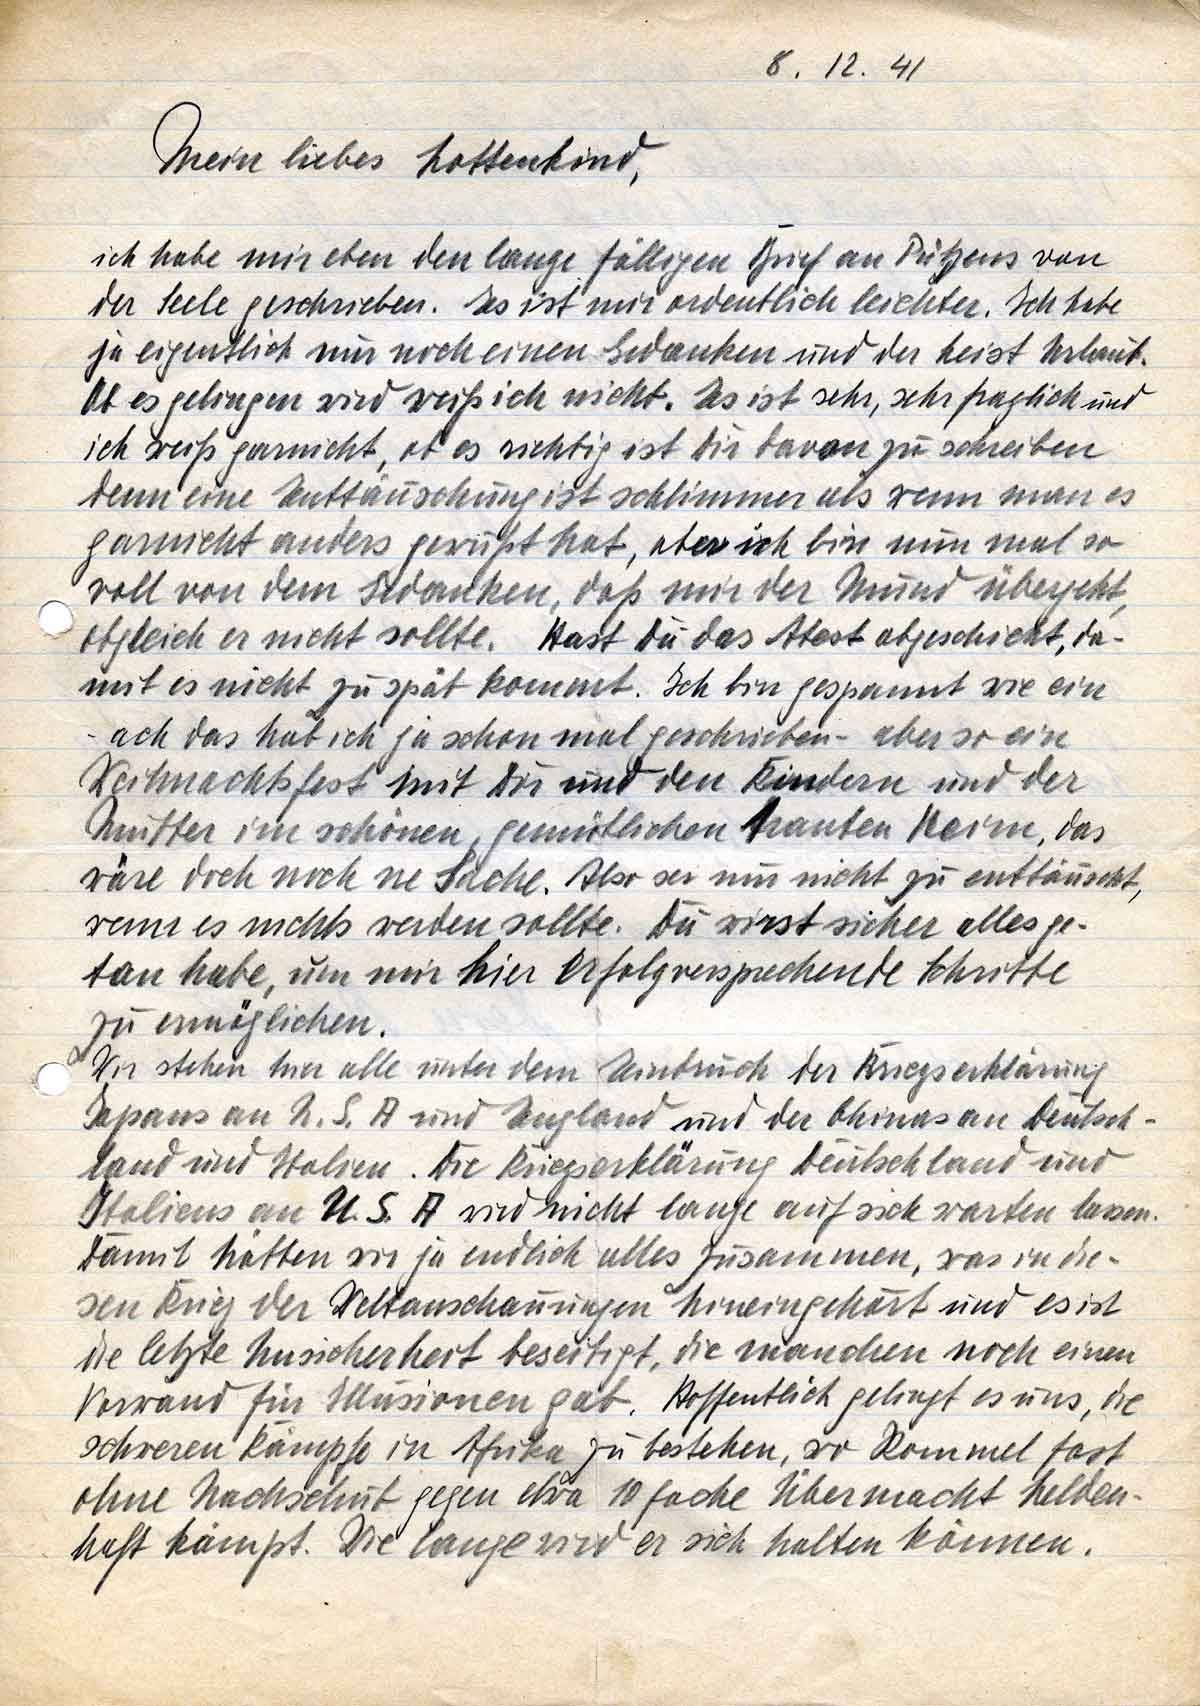 8. 12. 41
Mein liebes Lottenkind,
ich habe mir eben den lange fälligen Brief an Pützens von
der Seele geschrieben. Es ist mir ordentlich leichter. Ich habe
ja eigentlich nur noch einen Gedanken und der heist Urlaub.
Ob es gelingen wird weiß ich nicht. Es ist sehr, sehr fraglich und
ich weiß garnicht, ob es richtig ist Dir davon zu schreiben
denn eine Enttäuschung ist schlimmer als wenn man es
garnicht anders gewußt hat, aber ich bin nun mal so
voll von dem Gedanken, daß mir der Mund übergeht,
obgleich er nicht sollte. Hast Du das Atest abgeschickt, da-
mit es nicht zu spät kommt. Ich bin gespannt wie ein
- ach das hab ich ja schon mal geschrieben - aber so ein
Weihnachtsfest mit Dir und den Kindern und der
Mutter im schönen, gemütlichen trauten Heim, das
wäre doch noch ne Sache. Also sei nur nicht zu enttäuscht,
wenn es nichts werden sollte. Du wirst sicher alles ge-
tan habe, um mir hier erfolgversprechende Schritte
zu ermöglichen.
Wir stehen hier alle unter dem Eindruck der Kriegserklärung
Japans an U. S. A und England und der Chinas an Deutsch-
land und Italien. Die Kriegserklärung Deutschland und
Italiens an U. S. A wird nicht lange auf sich warten lassen.
Damit hätten wir ja endlich alles zusammen, was in die-
sen Krieg der Weltanschauungen hineingehört und es ist
die letzte Unsicherheit beseitigt, die manchen noch einen
Vorwand für Illusionen gab. Hoffentlich gelingt es uns, die
schweren Kämpfe in Afrika zu bestehen, wo Rommel fast
ohne Nachschub gegen etwa 10 fache Übermacht helden-
haft kämpft. Wie lange wird er sich halten können.